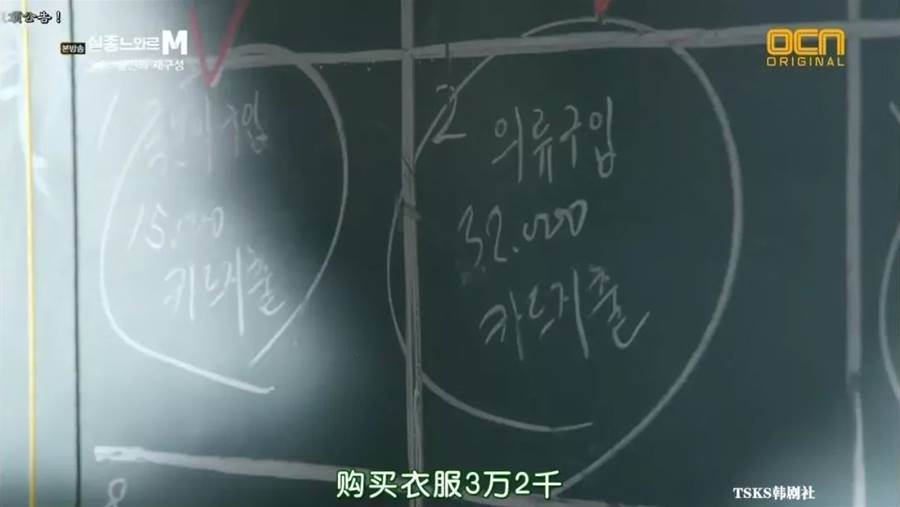 公告！
본방송 실종느와르 M
재구성
OCN
ORIGINAL
1
구입
15.000
카드지출
2
의류구입
32.000
카드지출
8
购买衣服3万2千
TSKS韩剧社